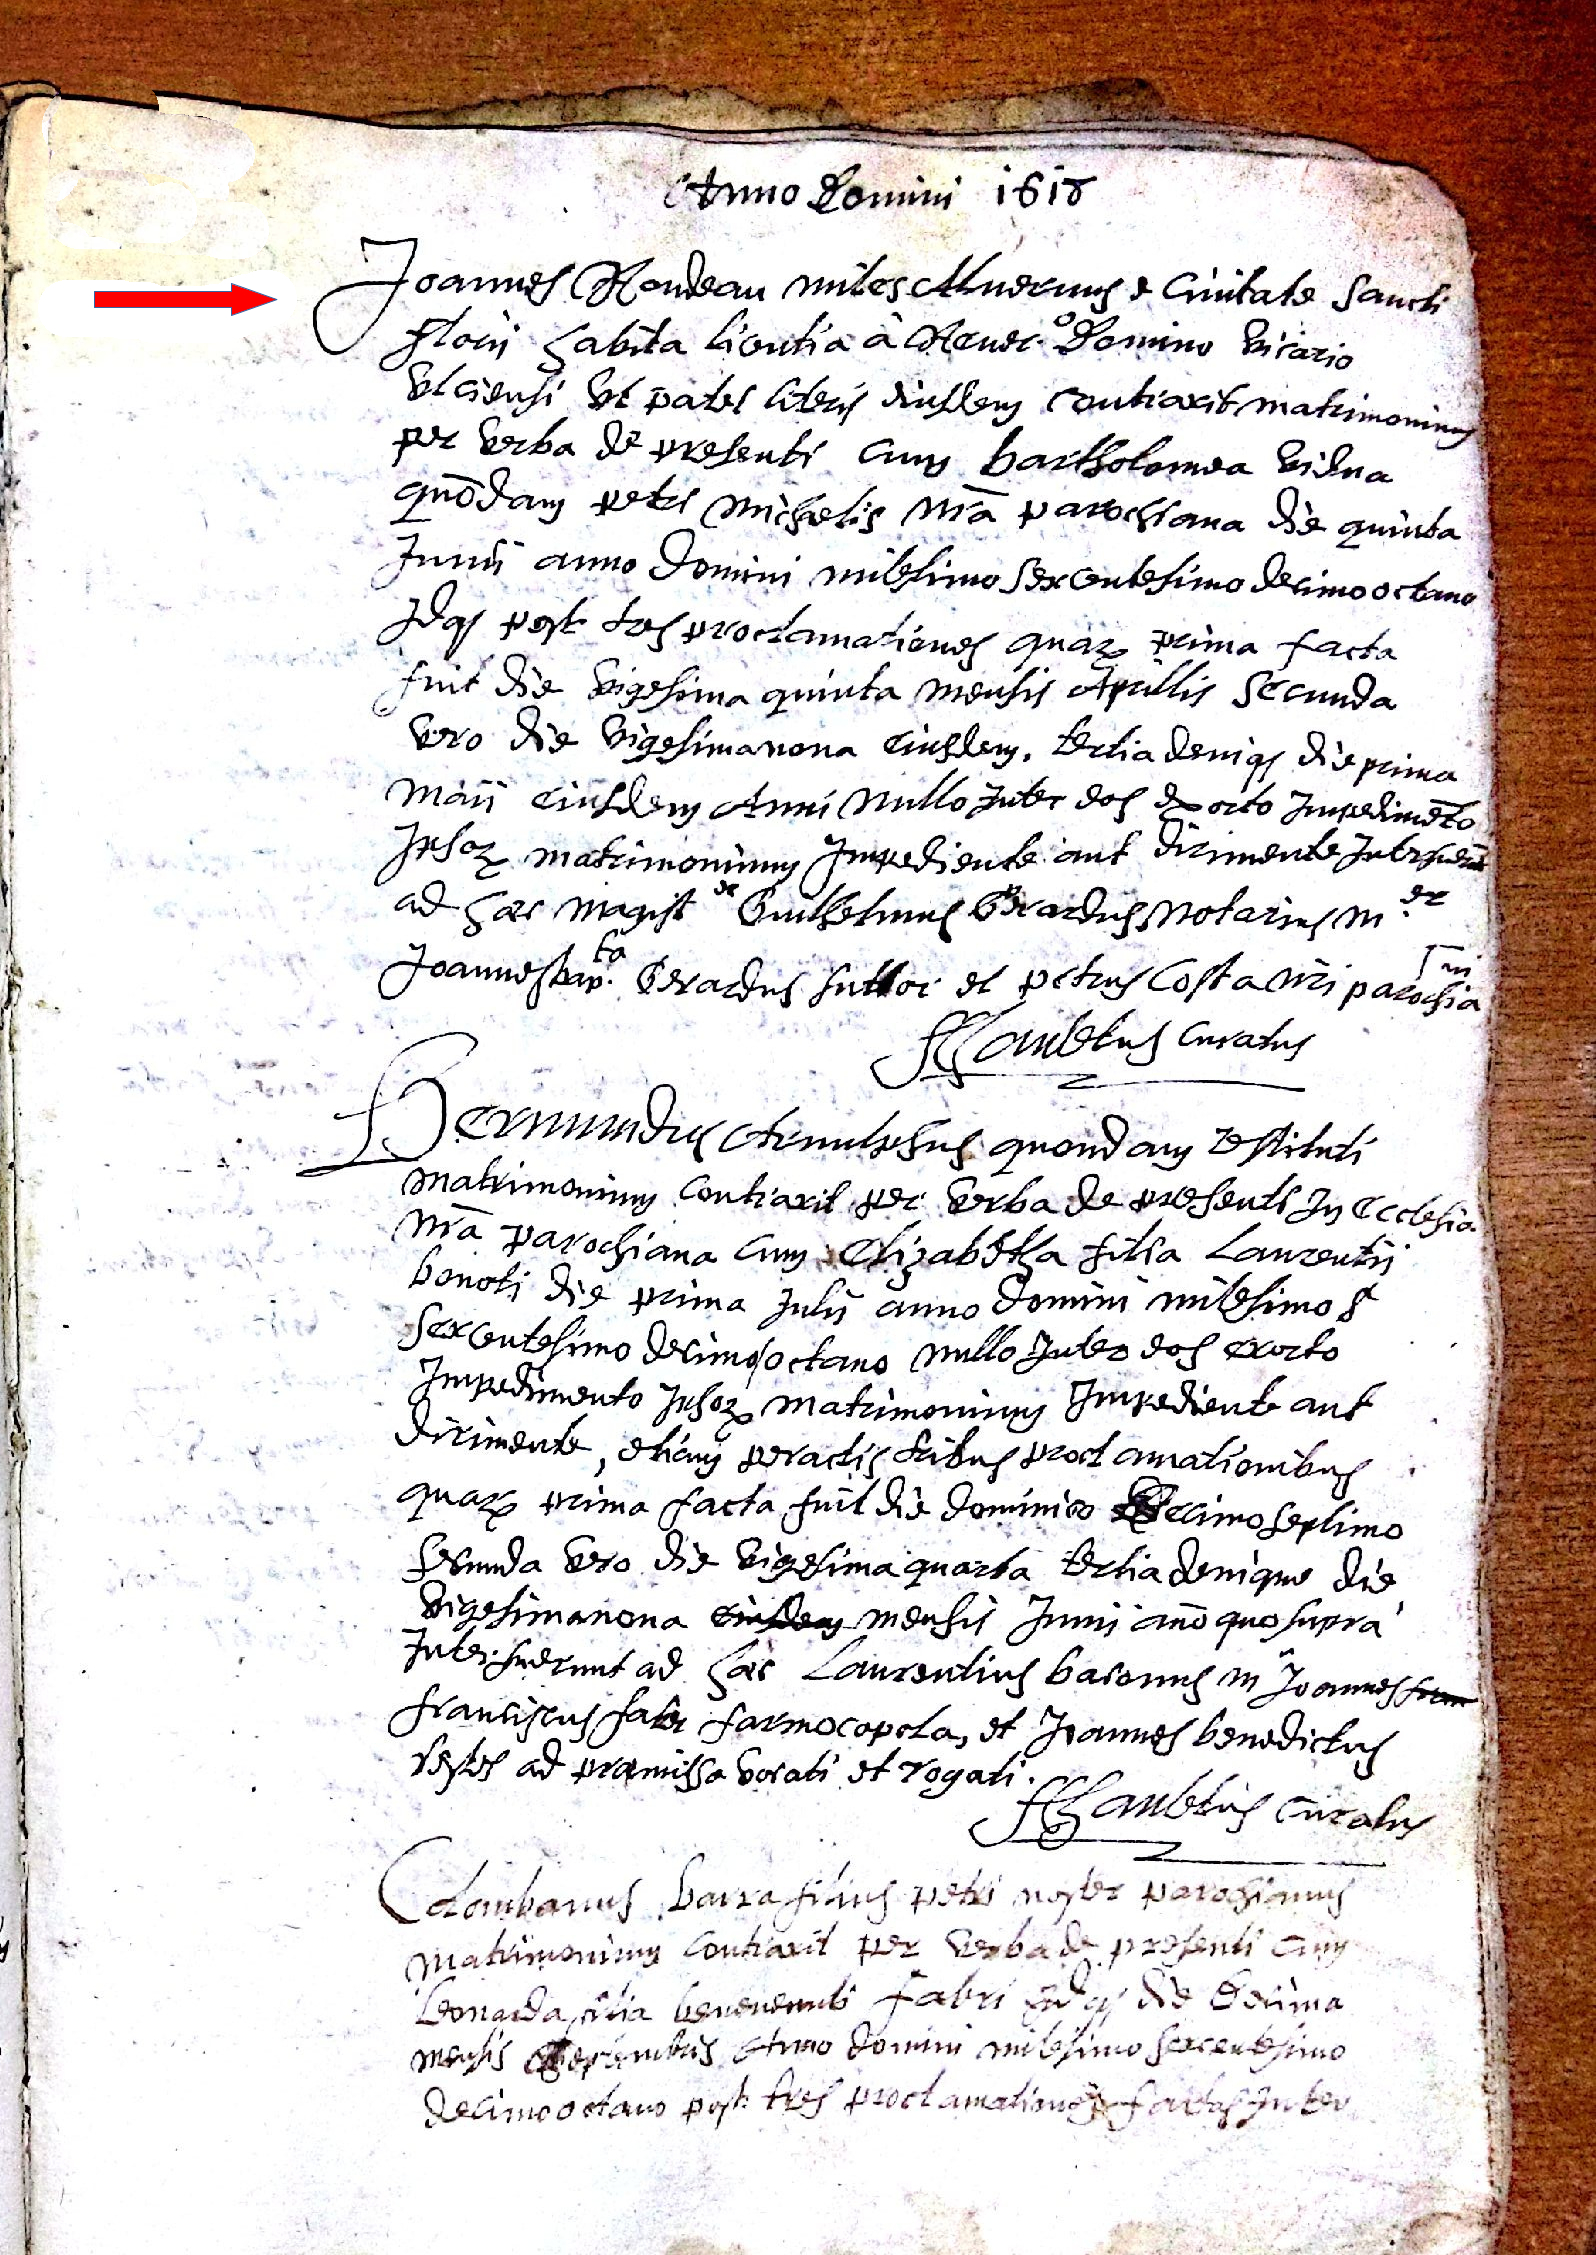 Anno Domini 1618
Joannes Rondeau miles Aluernus e Ciuitate Sancti
florii habita licentia à Reuer.do Domino Vicario
Vlciensi Vt patet literis eiusdem contraxit matrimonium
per Verba de presenti cum bartholomea Vidua
quōdam petri Michaelis nrā parochiana die quinta
Junii anno Domini milesimo sexcentesimo decimo octauo
Jdq; post tres proclamationes quarū prima facta
fuit die Vigesima quinta mensis Aprillis Secunda
Vero die Vigesimanona eiusdem. tertia deniq; die prima
Maii eiusdem Anni Nullo Inter eos exorto Impedimēto
Ipsorū matrimonium Impediente aut dirimente Interfuerūt
ad hæc Magist.er Guilhelmus Gerardus Notarius M.er
Joannesbap.ta Gerardus suttor et petrus Costa nr̄i parochiani
curatus
Bermundus Arnulphus quondam restituti
matrimonium Contraxit per Verba de presenti In Ecclesia
nrā parochiana Cum Elizabetha filia Laurentii
bonoti die prima Julii anno Domini milesimo s
Sexcentesimo decimo octauo Nullo Inter eos exorto
Impedimento Ipsorū matrimonium Impediente aut
dirimente, etiam peractis tribus proclamationibus
quarū prima facta fuit die dominico decimo septimo
secunda Vero die Vigesima quarta tertia denique die
Vigesimanona eiusdem mensis Junii ano quo supra
Interfuerunt ad hæc Laurentius baronus m Joannes fran
franciscus faber farmocopola, et Joannes benedictus
testes ad præmissa Vocati et rogati.
Curatus
Colombanus barra filius petri noster parochianus
matrimonium Contraxit per Verba de presenti Cum
Leonarda filia beneuenuti fabri Idq; die Decima
mensis Septembris Anno Domini milesimo sexcentesimo
decimo octauo post tres proclamationes factas Inter